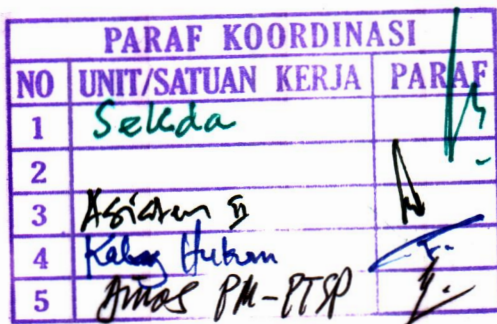 PARAF KOORDINASI
NO UNIT/SATUAN KERJA PARAF
1 Sekda
2
3 Asisten II
4 Kabag Hukum
5 Dinas PM-PTSP